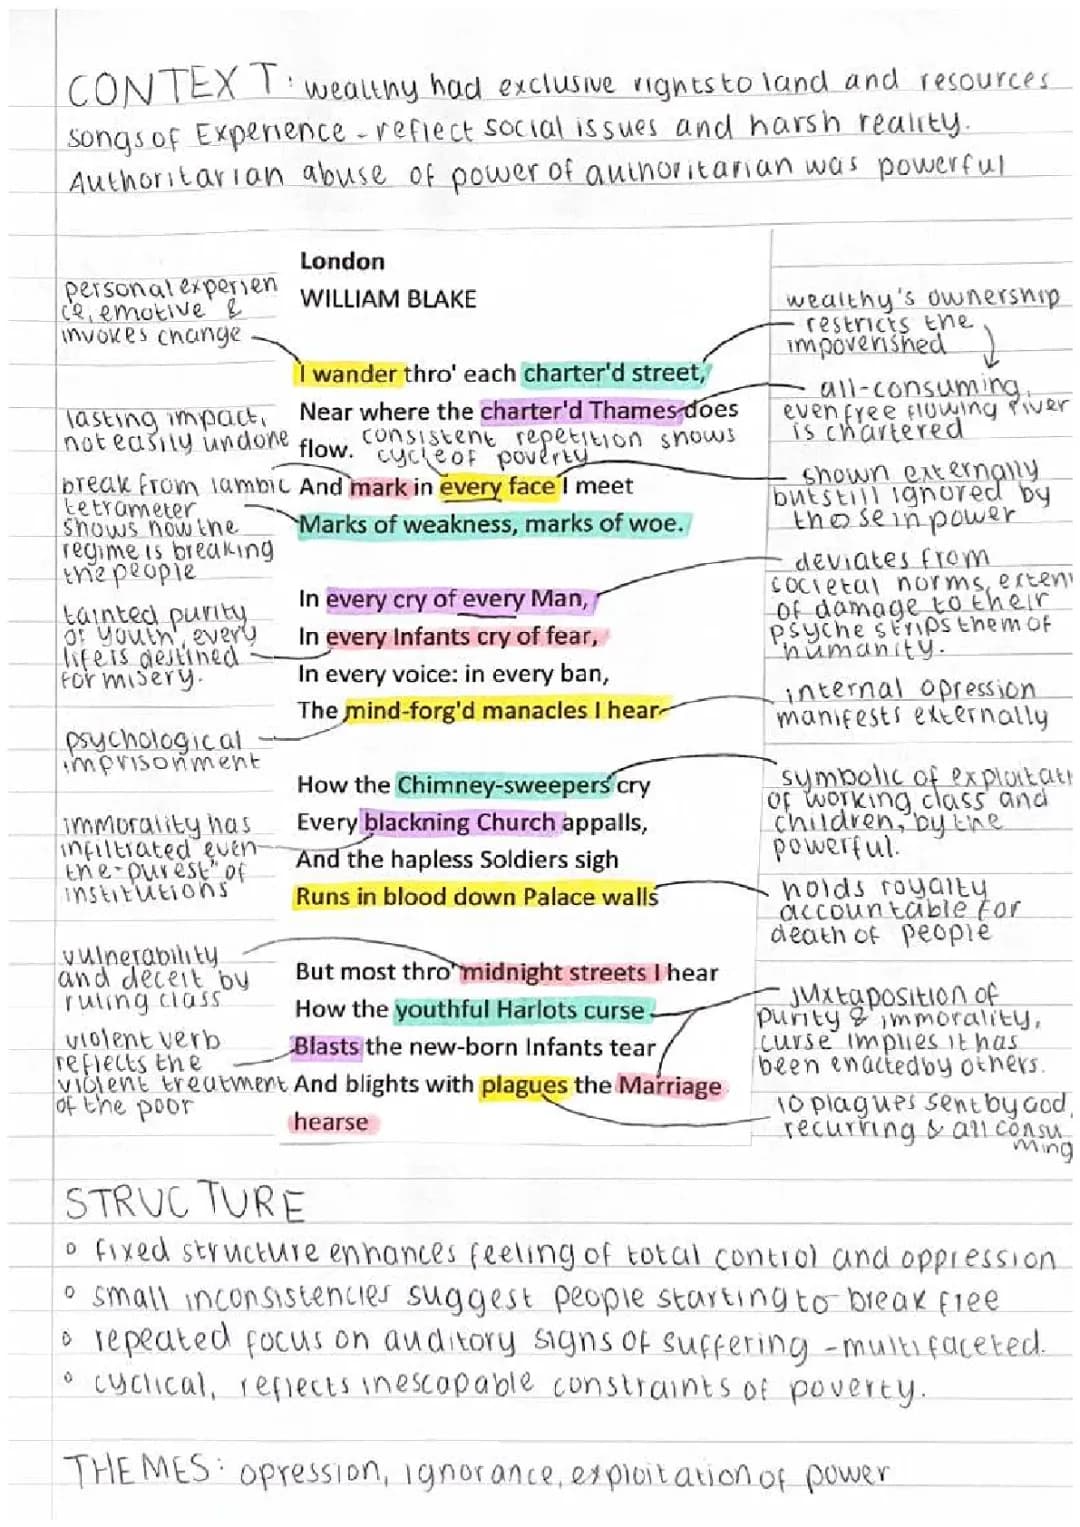 CONTEXT: wealthy had exclusive rights to land and resources
songs of Experience - reflect social issues and harsh reality.
Authoritarian abuse of power of authoritarian was powerful
London
WILLIAM BLAKE
personal experien
ce, emotive &
invokes change
wealthy's ownership
restricts the
impoverished
I wander thro' each charter'd street,
all-consuming,
even free flowing river
is chartered
Near where the charter'd Thames does
lasting impact,
not easily undone
flow.
consistent repetition shows
cycle of poverty
And mark in every face I meet
break from iambic
tetrameter
shows how the
regime is breaking
the people
shown externally
but still ignored by
those in power
Marks of weakness, marks of woe.
deviates from
societal norms, exten
of damage to their
psyche strips them of
humanity.
In every cry of every Man,
tainted purity
of youth, every
life is destined
for misery.
In every Infants cry of fear,
In every voice: in every ban,
The mind-forg'd manacles I hear
internal opression
manifests externally
psychological
imprisonment
How the Chimney-sweepers cry
symbolic of exploitati
of working class and
children, by the
powerful.
Every blackning Church appalls,
immorality has
infiltrated even
the "purest" of
institutions
And the hapless Soldiers sigh
Runs in blood down Palace walls
holds royalty
accountable for
death of people
vulnerability
and deceit by
ruling class
But most thro' midnight streets I hear
How the youthful Harlots curse
juxtaposition of
purity & immorality,
curse implies it has
been enacted by others.
violent verb
reflects the
violent treatment
of the poor
Blasts the new-born Infants tear
And blights with plagues the Marriage
hearse
10 plagues sent by God,
recurring & all consu
ming
STRUCTURE
° fixed structure enhances feeling of total control and oppression
° small inconsistencies suggest people starting to break free
° repeated focus on auditory signs of suffering - multifaceted.
° cyclical, reflects inescapable constraints of poverty.
THEMES: opression, ignorance, exploitation of power